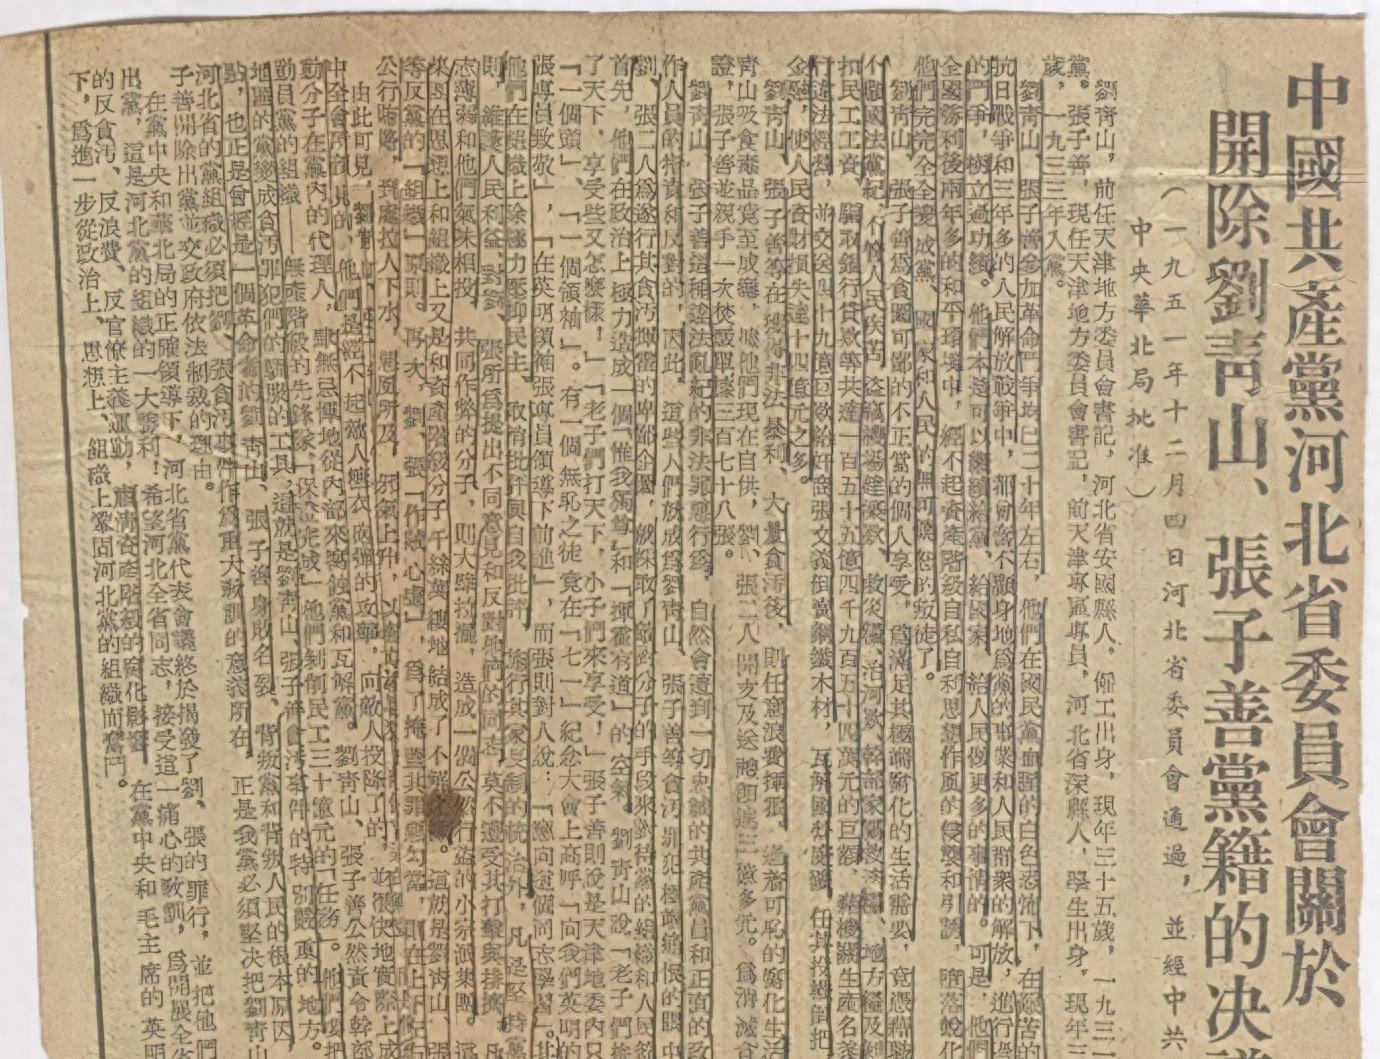 中國共產黨河北省委員會關於
開除劉靑山、張子善黨籍的决議
(一九五一年十二月四日河北省委員會通過，並經中共
中央華北局批准)
劉靑山，前任天津地方委員會書記，河北省安國縣人。僱工出身，現年三十五歲，一九三一
黨。張子善，現任天津地方委員會書記，前天津專區專員，河北省深縣人，學生出身，現年三
歲，一九三三年入黨。
劉靑山、張子善參加革命鬥爭均已二十年左右，他們在國民黨血腥的白色恐怖下，在艱苦的
抗日戰爭和三年多的人民解放戰爭中，都曾奮不顧身地爲黨的事業和人民群衆的解放，進行過
的鬥爭，樹立過功績。他們本是可以繼續給黨、給國家、給人民做更多的事情的。可是，他們
全國勝利後兩年多的和平環境中，經不起資產階級自私自利思想作風的侵襲和引誘，墮落蛻化
他們完完全全變成黨、國家和人民的無可饒恕的叛徒了。
劉靑山、張子善爲貪圖可鄙的不正當的個人享受，爲滿足其極端腐化的生活需要，竟憑藉職
不顧國法黨紀，不管人民疾苦，盜竊機場建築款、救災糧、治河款、幹部家屬救濟糧、地方糧及剋
扣民工工資，騙取銀行貸款等共達一百五十五億四千九百五十四萬元的巨額，藉機關生產名義
行違法經營，並交送四十九億巨款給奸商張文義倒賣鋼鐵木材，瓦解國營礦廠，任其投機倒把
金融，使人民資財損失達十四億元之多。
劉靑山、張子善等在獲得非法暴利、大量貪汚後，則任意浪費揮霍，過着可恥的腐化生活
靑山吸食毒品竟至成癮，據他們現在自供，劉、張二人開支及送禮卽達三億多元。爲消滅
證，張子善並親手一次焚燬單據三百七十八張。
劉靑山、張子善這種違法亂紀的非法罪惡行爲，自然會遭到一切忠誠的共產黨員和正直的
作人員的指責和反對的，因此，這些人們就成爲劉靑山、張子善等貪汚罪犯極端痛恨的眼中
劉、張二人爲遂行其貪汚揮霍的卑鄙企圖，就採取了敵對分子的手段來對待黨的組織和人民
首先，他們在政治上極力造成一個「惟我獨尊」和「揮霍有道」的空氣，劉靑山說「老子們拚
了天下，享受些又怎麽樣！」「老子們打天下，小子們來享受！」張子善則說是天津地委內只
「一個頭」、「一個領袖」。有一個無恥之徒竟在「七一」紀念大會上高呼「向我們英明的
張專員致敬」，「在英明領袖張專員領導下前進」，而張則對人說：「應向這個同志學習」。其
他們在組織上除極力壓抑民主，取消批評與自我批評，施行其家長制的統治外，凡是堅持黨
則，維護人民利益，對劉、張所爲提出不同意見和反對他們的同志，莫不遭受其打擊與排擠，凡
志薄弱和他們氣味相投、共同作弊的分子，則大肆拉攏，造成一個公然行盜的小宗派集團。這
集團在思想上和組織上又是和資產階級分子千絲萬縷地結成了不解之緣。這就是劉靑山、張
等反黨的「組織」原則。再次，劉、張「作賊心虛」，爲了掩蓋其罪惡勾當，則在上下左右
公行賄賂，到處拉人下水，
由此可見，劉靑山、張子善
中全會所預見的，他們是經不起敵人糖衣砲彈的攻擊，向敵人投降了的，並很快地實際上成
動分子在黨內的代理人，肆無忌憚地從內部來腐蝕黨和瓦解黨。劉靑山、張子善公然責令幹部
動員黨的組織——無產階級的先鋒隊，「保證完成」他們剝削民工三十億元的「任務」。他們要把
地區的黨變成貪汚罪犯們的馴服的工具，這就是劉靑山、張子善貪汚事件的特別嚴重的地方。
點，也正是曾經是一個革命者的劉靑山、張子善身敗名裂、背叛黨和背叛人民的根本原因，
河北省的黨組織必須把劉、張貪汚事件作爲重大教訓的意義所在，正是我黨必須堅决把劉靑山
子善開除出黨並交政府依法制裁的理由。
在黨中央和華北局的正確領導下，河北省黨代表會議終於揭發了劉、張的罪行，並把他們
出黨，這是河北黨的組織的一大勝利！希望河北全省同志，接受這一痛心的教訓，爲開展全省
的反貪汚、反浪費、反官僚主義運動，肅淸資產階級的腐化影響，在黨中央和毛主席的英明
下，爲進一步從政治上、思想上、組織上鞏固河北黨的組織而奮鬥。